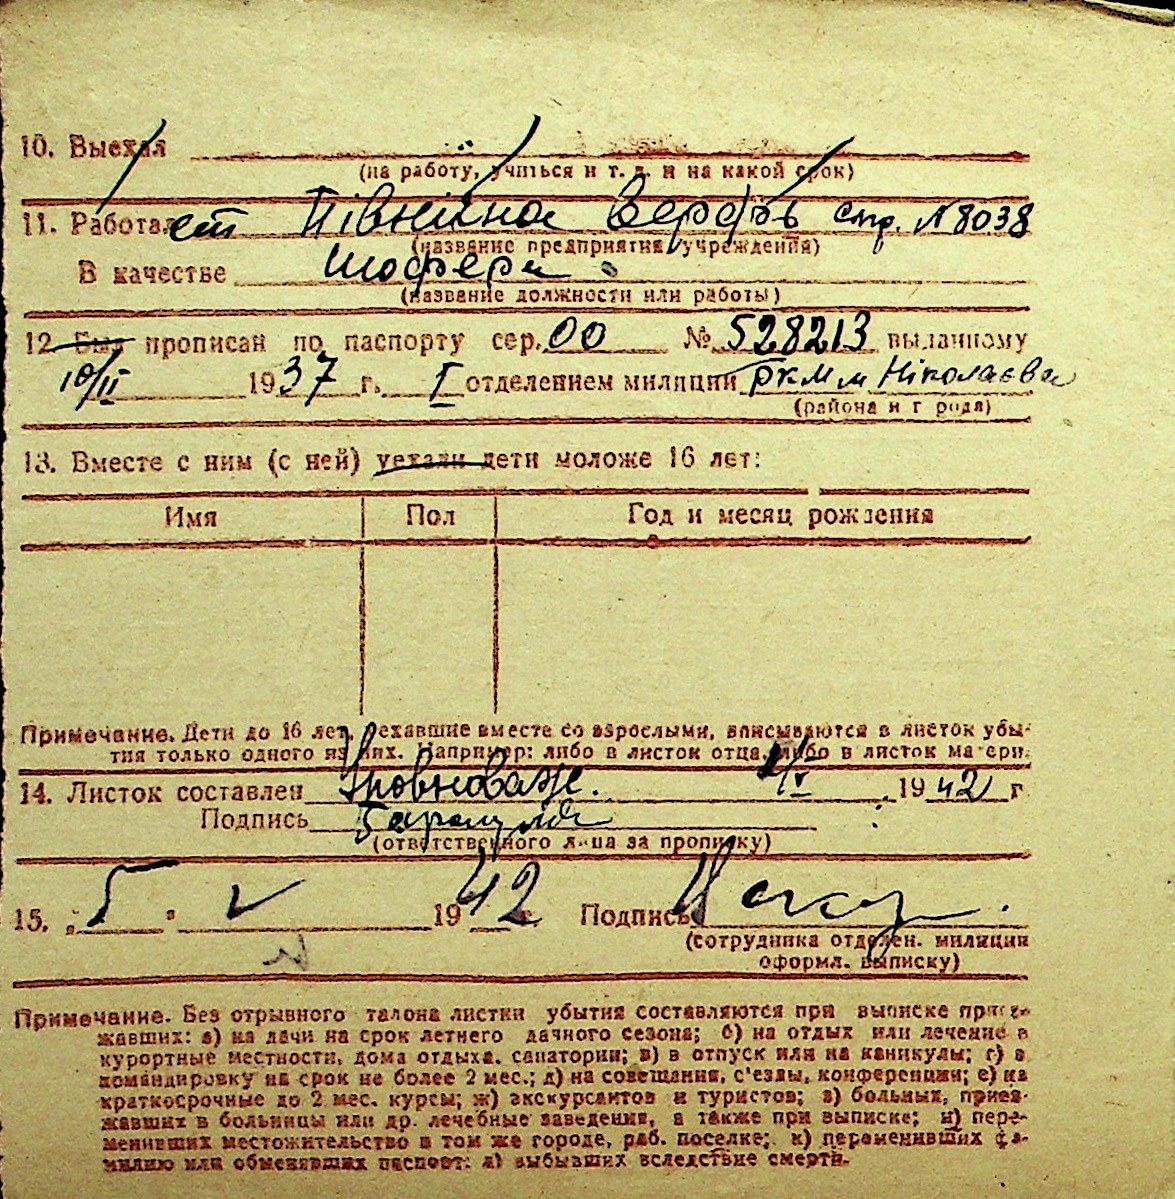 10. Выехал
(на работу, учиться и т. д. и на какой срок)
11. Работает Північна верфь спр. N 8038
(название предприятия учреждения)
В качестве шофера
(название должности или работы)
12 Был прописан по паспорту сер. 00 № 528213 выданному
10/II 1937 г. I отделением милиции РКМ м Ніколаєва
(района и города)
13. Вместе с ним (с ней) уехали дети моложе 16 лет:
Имя Пол Год и месяц рождения
Примечание. Дети до 16 лет, уехавшие вместе со взрослыми, вписываются в листок убы-
тия только одного из них. Например: либо в листок отца, либо в листок матери.
14. Листок составлен 1942 г
Подпись
(ответственного лица за прописку)
15. 5 V 1942 Подпись
(сотрудника отделен. милиции
оформл. выписку)
Примечание. Без отрывного талона листки убытия составляются при выписке приез-
жавших: а) на дачи на срок летнего дачного сезона; б) на отдых или лечение в
курортные местности, дома отдыха, санатории; в) в отпуск или на каникулы; г) в
командировку на срок не более 2 мес.; д) на совещания, с'езды, конференции; е) на
краткосрочные до 2 мес. курсы; ж) экскурсантов и туристов; з) больных, приез-
жавших в больницы или др. лечебные заведения, а также при выписке; и) пере-
менивших местожительство в том же городе, раб. поселке; к) переменивших фа-
милию или обменявших паспорт: л) выбывших вследствие смерти.